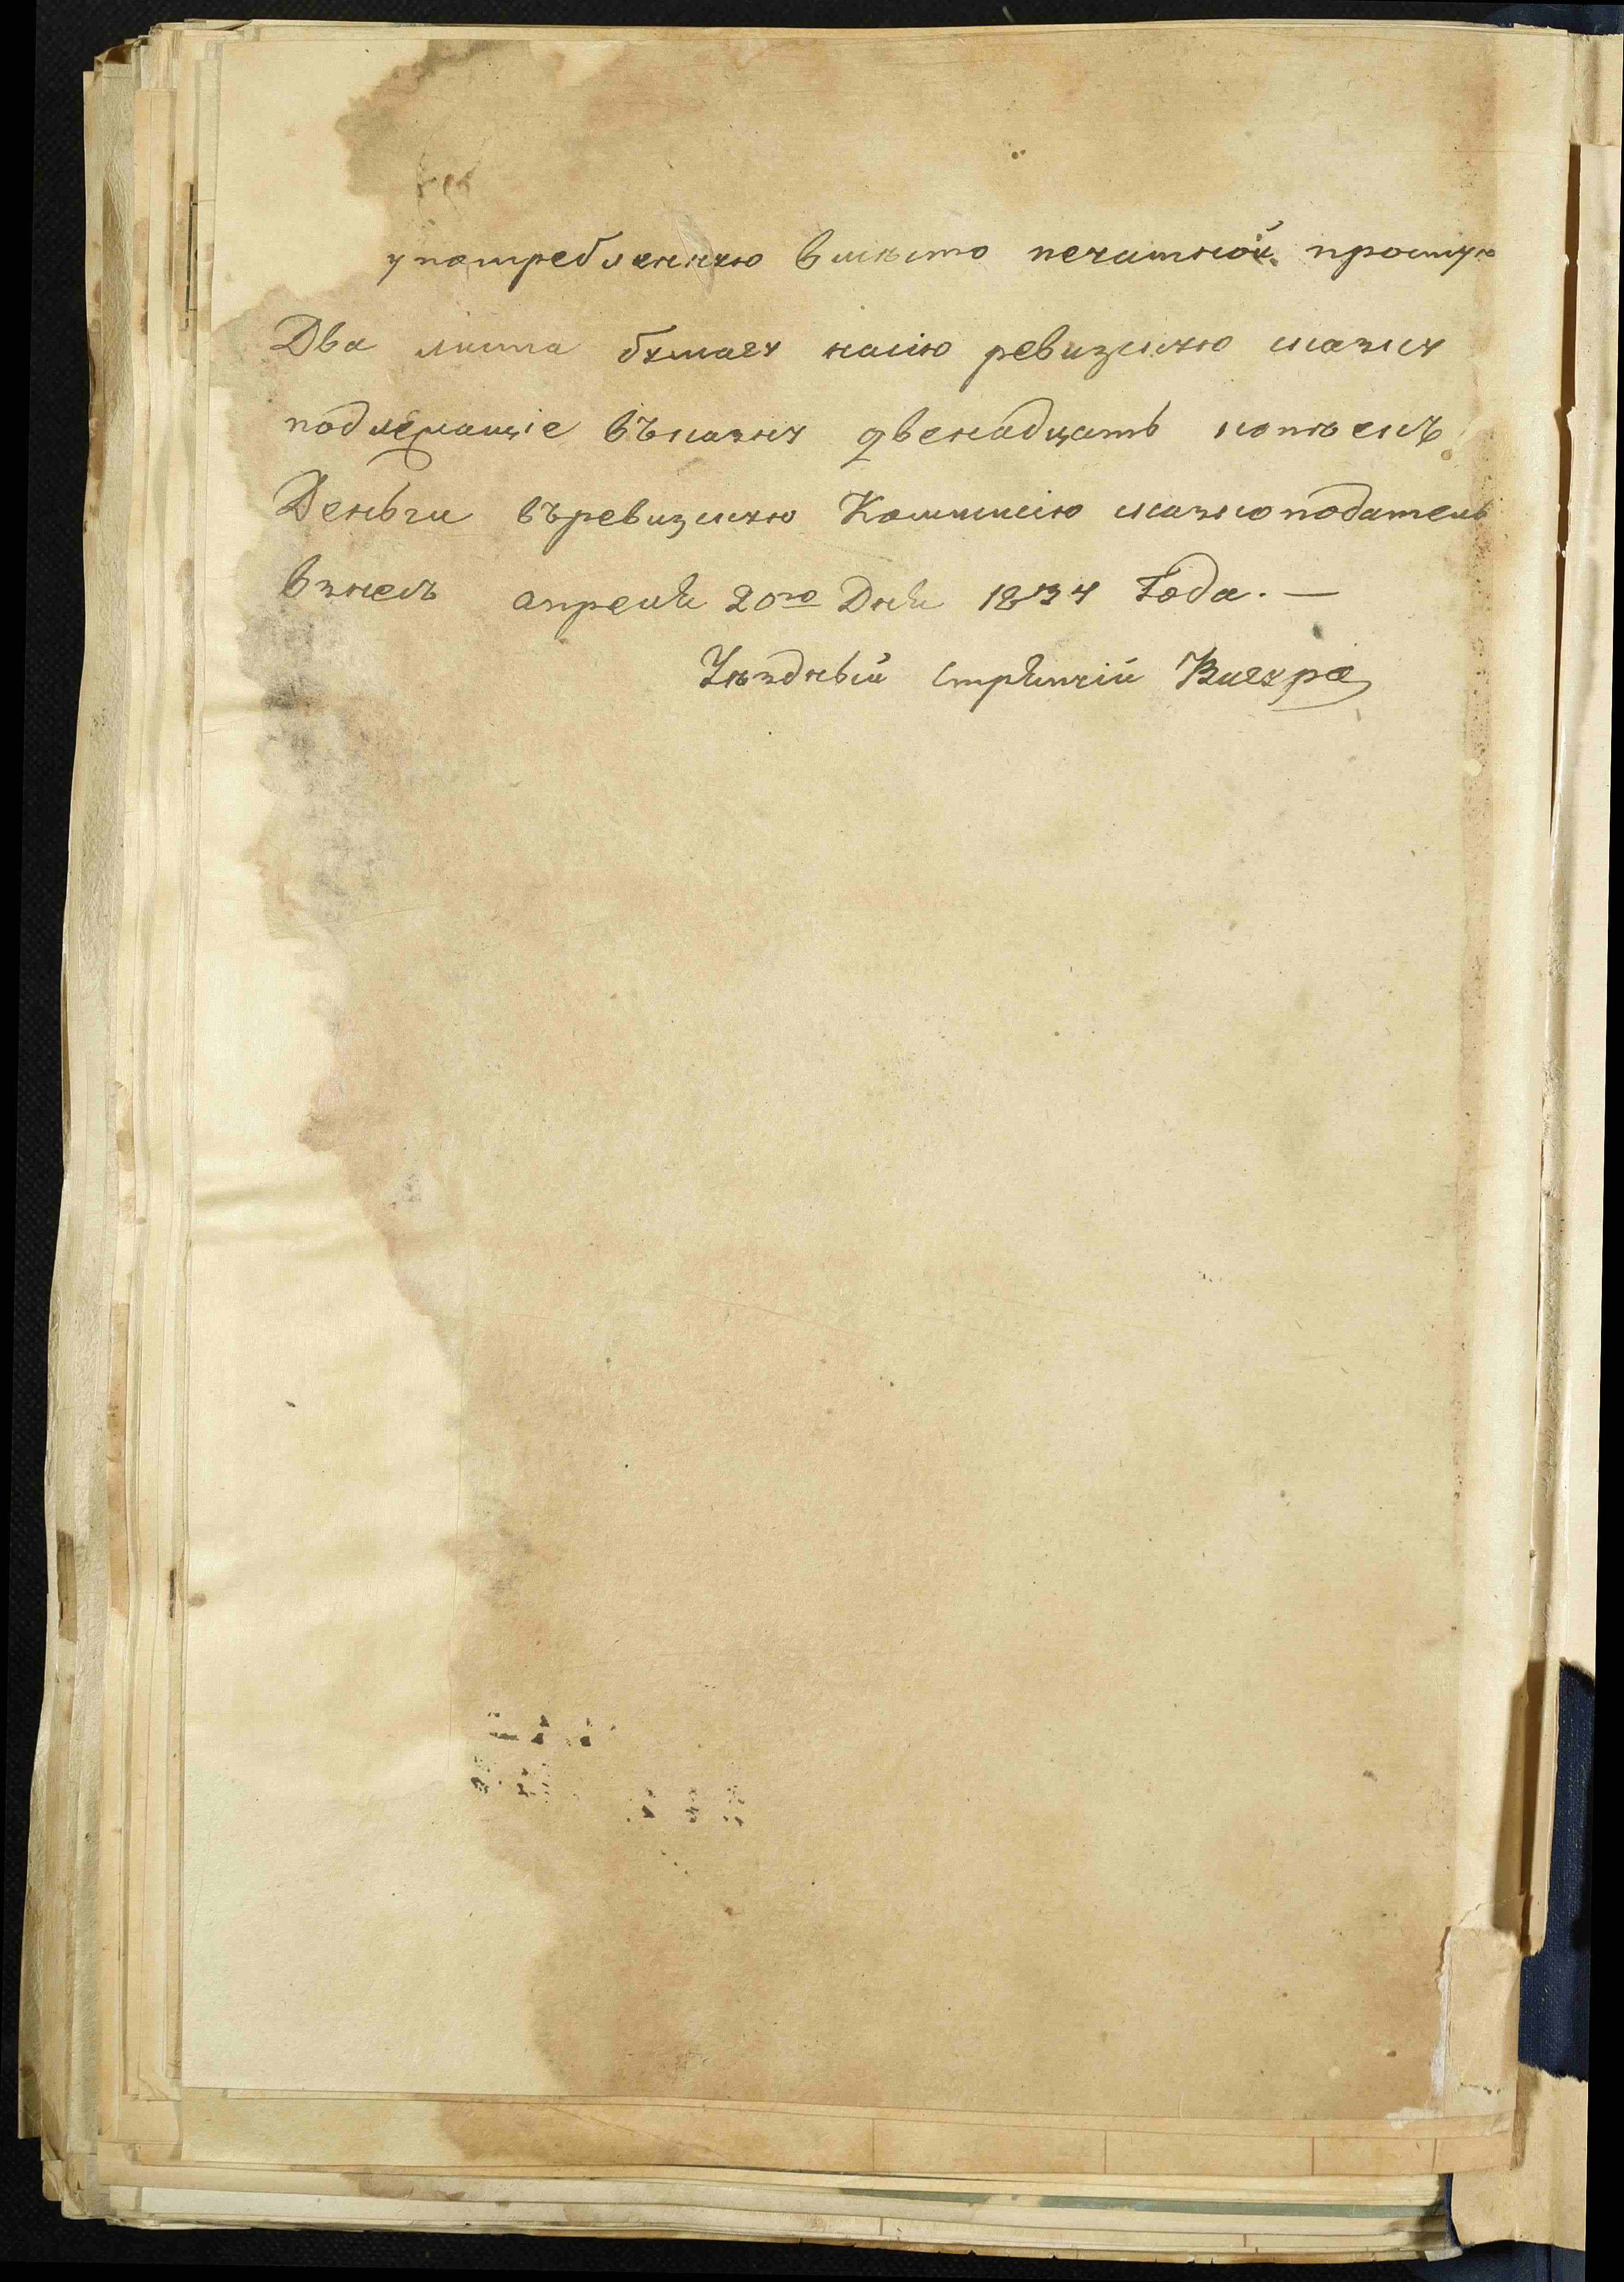 употребленную вмѣсто печатной простую
Два листа бумагу насію ревизскую сказку
подлежащіе въказну двенадцать копѣекъ
Деньги въревизскую Коммисію сказкоподатель
взнесъ апреля 20го Дня 1834 Года. —
Уѣздный Стряпчій